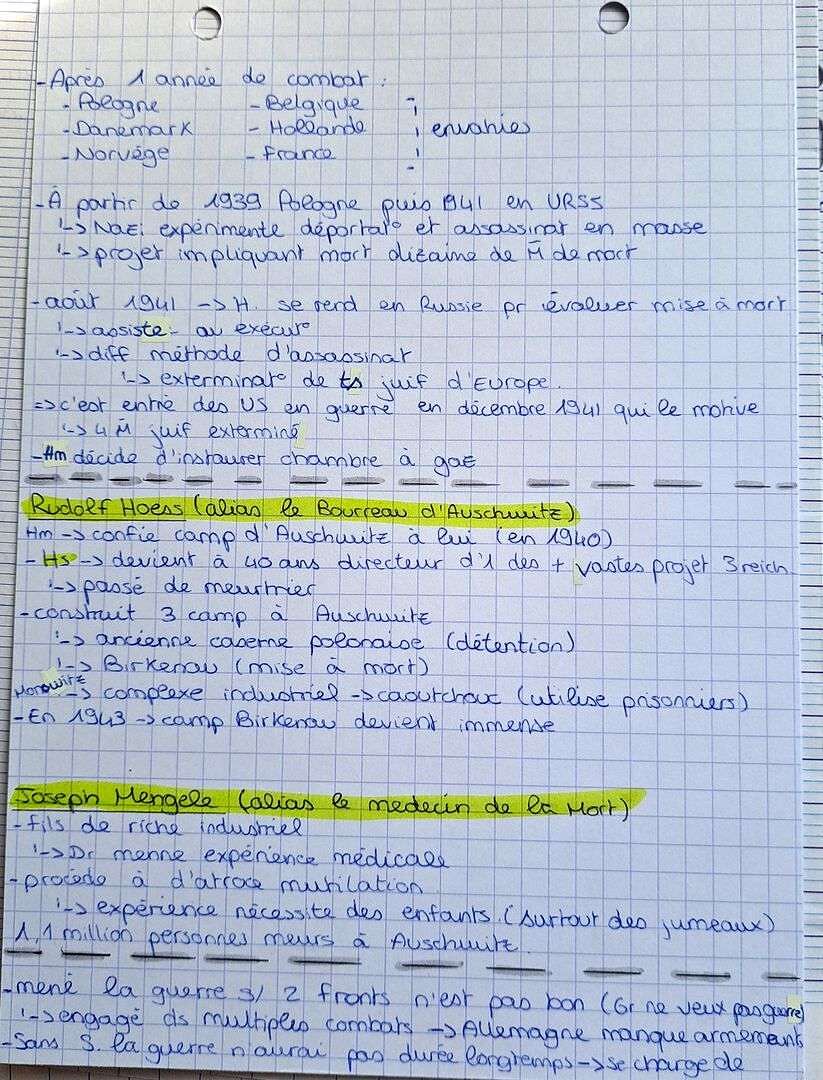 - Après 1 année de combat :
- Pologne - Belgique
- Danemark - Hollande envahies
- Norvège - France
- À partir de 1939 Pologne puis 1941 en URSS
↳ Nazi expérimente déportat° et assassinat en masse
↳ projet impliquant mort dizaine de M̄ de mort
- août 1941 -> H. se rend en Russie pr évaluer mise à mort
↳ assiste au exécut°
↳ diff méthode d'assassinat
↳ exterminat° de ts juif d'Europe.
=> c'est entré des US en guerre en décembre 1941 qui le motive
↳ 4 M̄ juif exterminé
- Hm décide d'instaurer chambre à gaz
Rudolf Hoess (alias le Bourreau d'Auschwitz)
Hm -> confie camp d'Auschwitz à lui (en 1940)
- Hs -> devient à 40 ans directeur d'1 des + vastes projet 3 reich
↳ passé de meurtrier
- construit 3 camp à Auschwitz
↳ ancienne caserne polonaise (détention)
↳ Birkenau (mise à mort)
Monowitz -> complexe industriel -> caoutchouc (utilise prisonniers)
- En 1943 -> camp Birkenau devient immense
Joseph Mengele (alias le medecin de la Mort)
- fils de riche industriel
↳ Dr menne expérience médicale
- procède à d'atroce mutilation
↳ expérience nécessite des enfants. (surtout des jumeaux)
1,1 million personnes meurs à Auschwitz.
- mené la guerre s/ 2 fronts n'est pas bon (Gr ne veux pas guerre)
↳ engagé ds multiples combats -> Allemagne manque armements
- Sans S. la guerre n'aurai pas durée longtemps -> se charge de